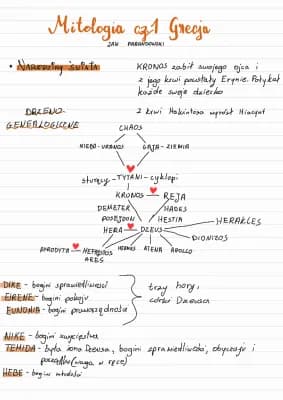 Mitologia cz1 Grecja
JAN PARANDOWSKI
• NARODZINY ŚWIATA
KRONOS zabił swojego ojca i
z jego krwi powstały Erynie. Połykał
każde swoje dziecko
DRZEWO
GENEALOGICZNE
z krwi Hiakintosa wyrósł Hiacynt
CHAOS
NIEBO-URANOS GAJA-ZIEMIA
sturęcy-TYTANI-cyklopi
KRONOS REJA
DEMETER HADES
POSEJDON HESTIA
HERA DZEUS HERAKLES
DIONIZOS
AFRODYTA HEFAJSTOS HERMES ATENA APOLLO
ARES
DIKE - bogini sprawiedliwości
EIRENE - bogini pokoju
EUNOMIA - bogini praworządności
trzy hory,
córki Dzeusa
NIKE - bogini zwycięstwa
TEMIDA - była żona Dzeusa, bogini sprawiedliwości, obyczaju i
porządku (waga w ręce)
HEBE - bogini młodości